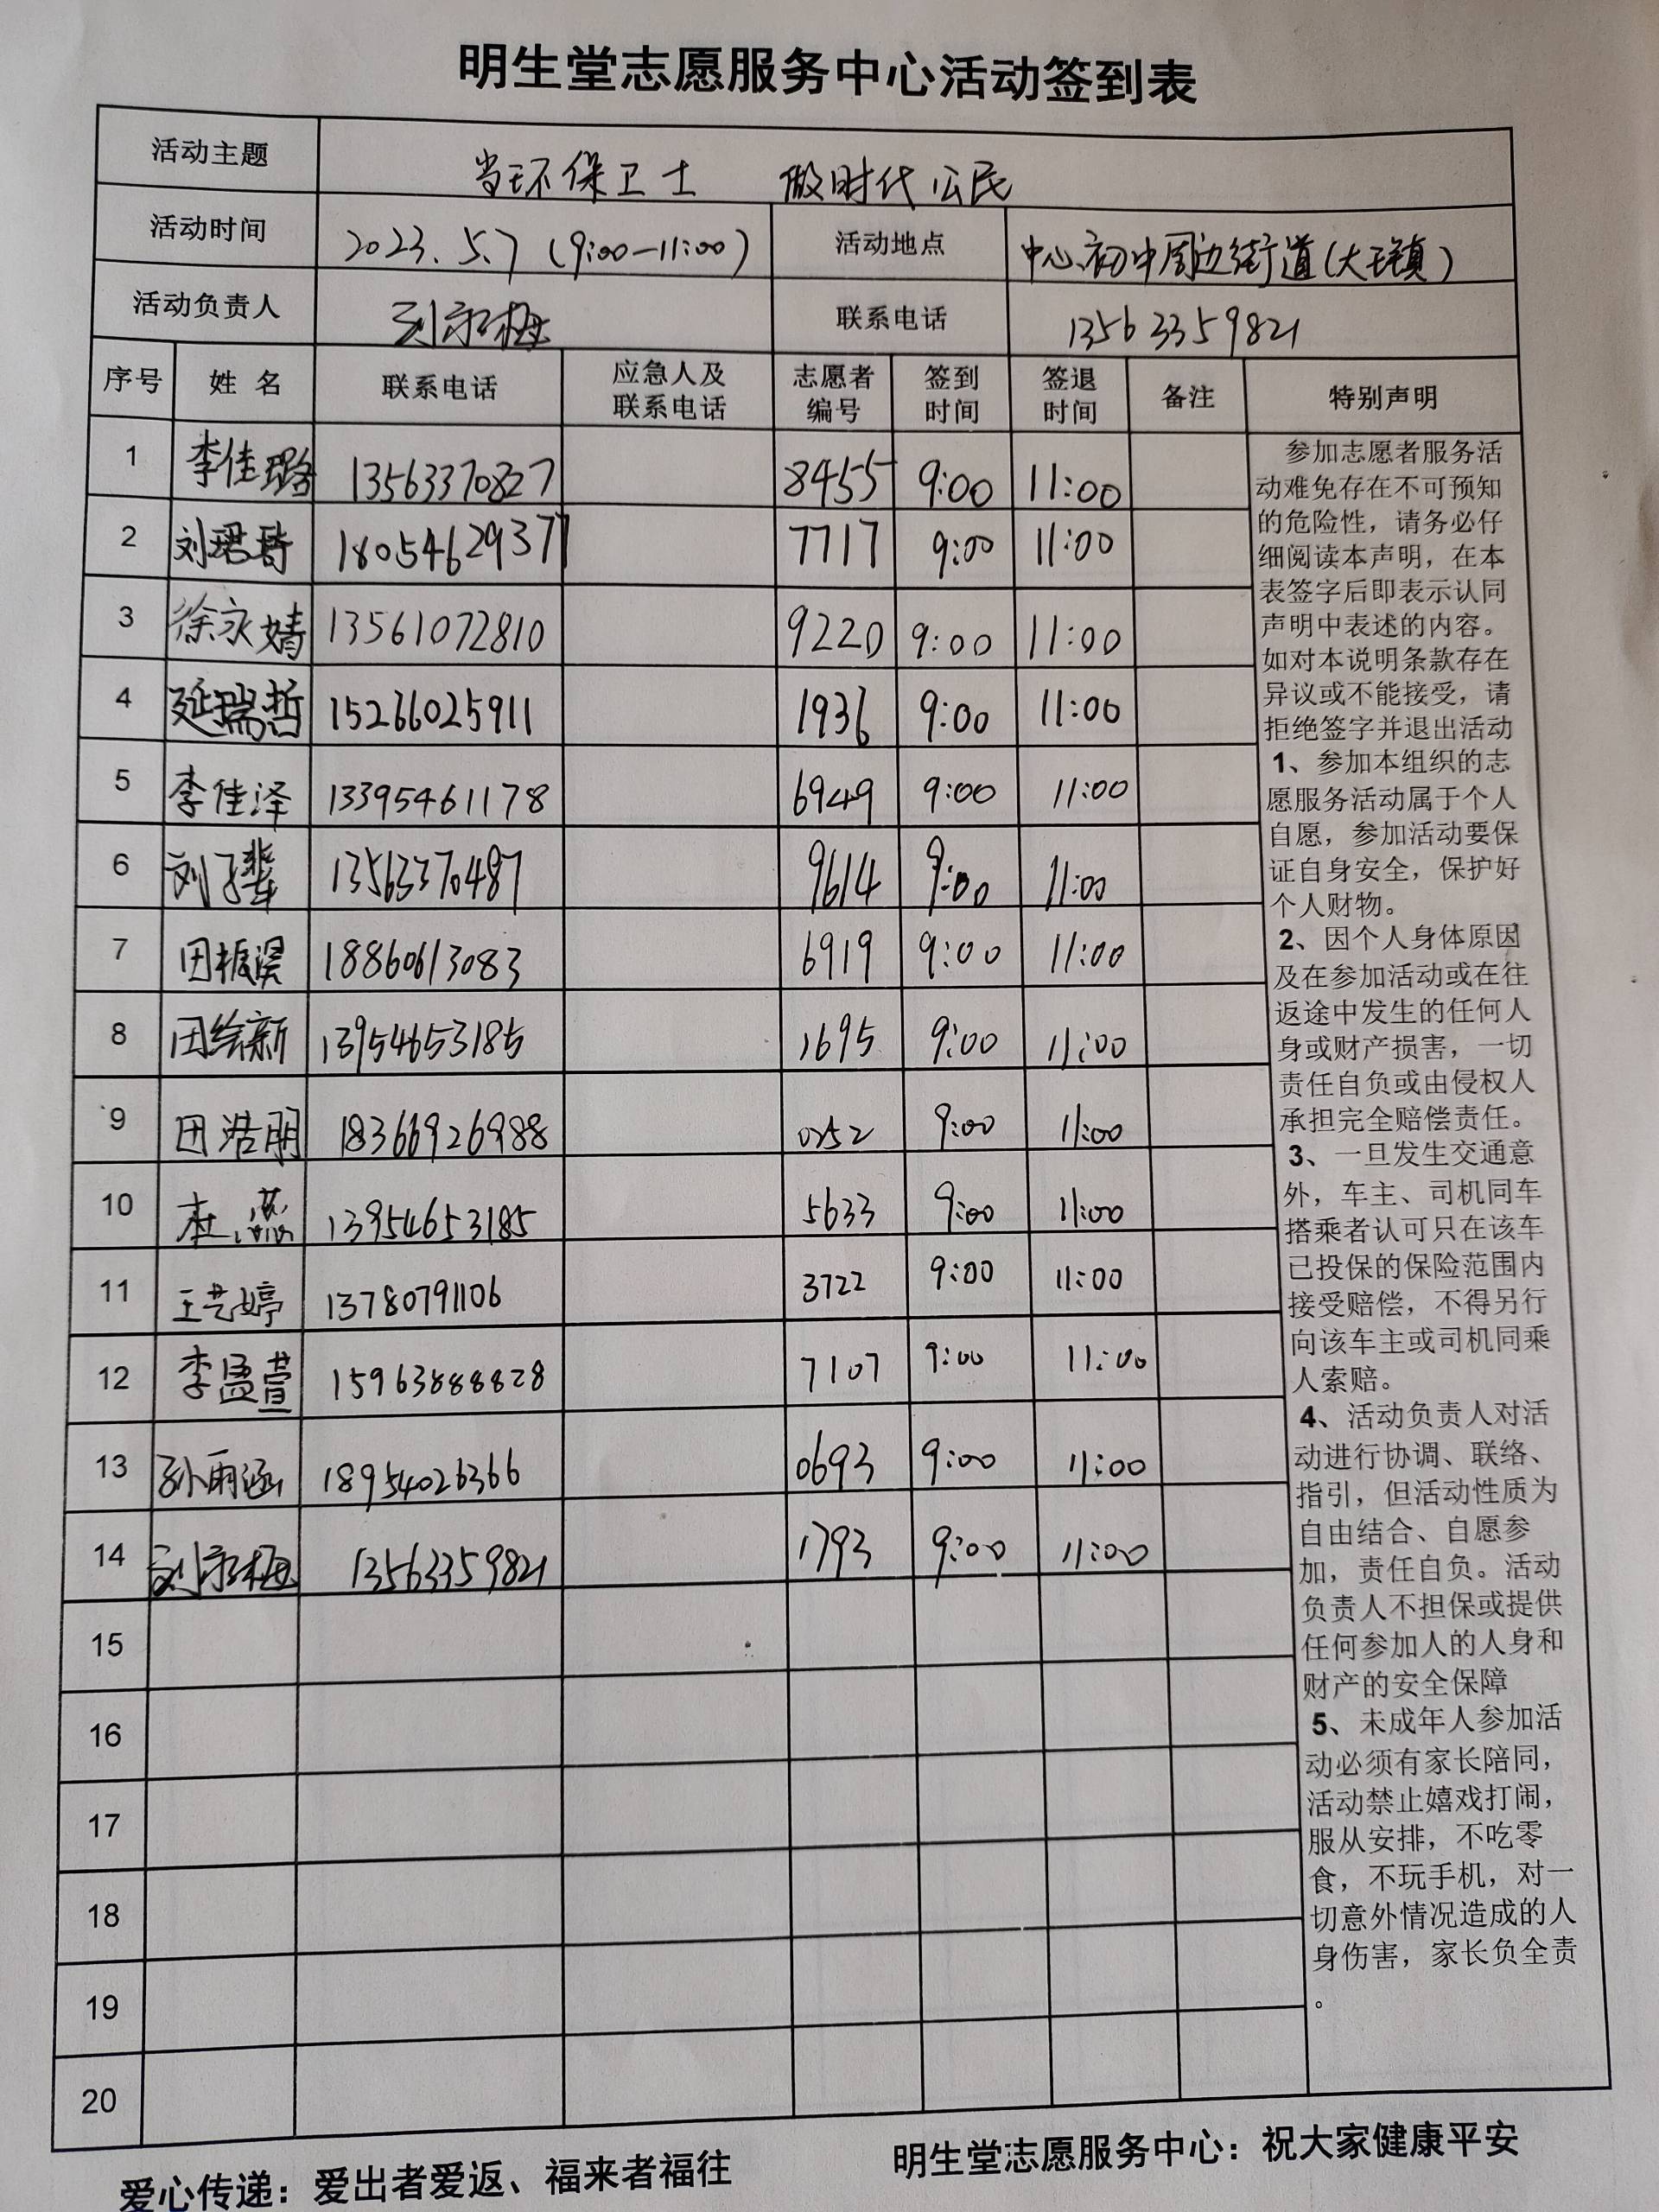 明生堂志愿服务中心活动签到表
活动主题 当环保卫士 做时代公民
活动时间 2023.5.7 (9:00-11:00) 活动地点 中心初中周边街道(大王镇)
活动负责人 联系电话 13563359821
序号 姓名 联系电话 应急人及联系电话 志愿者编号 签到时间 签退时间 备注 特别声明
1 李佳璐 13563370827 8455 9:00 11:00
2 刘珺琦 18054629377 7717 9:00 11:00
3 徐永婧 13561072810 9220 9:00 11:00
4 延瑞哲 15266025911 1936 9:00 11:00
5 李佳泽 13395461178 6949 9:00 11:00
6 13563370487 9614 9:00 11:00
7 田振淏 18860613083 6919 9:00 11:00
8 田绘新 13954653185 1695 9:00 11:00
9 田浩朋 18366926988 0252 9:00 11:00
10 13954653185 5633 9:00 11:00
11 王艺婷 13780791106 3722 9:00 11:00
12 李孟萱 15963888828 7107 9:00 11:00
13 孙雨涵 18954026366 0693 9:00 11:00
14 13563359821 1793 9:00 11:00
15
16
17
18
19
20
参加志愿者服务活
动难免存在不可预知
的危险性，请务必仔
细阅读本声明，在本
表签字后即表示认同
声明中表述的内容。
如对本说明条款存在
异议或不能接受，请
拒绝签字并退出活动
1、参加本组织的志
愿服务活动属于个人
自愿，参加活动要保
证自身安全，保护好
个人财物。
2、因个人身体原因
及在参加活动或在往
返途中发生的任何人
身或财产损害，一切
责任自负或由侵权人
承担完全赔偿责任。
3、一旦发生交通意
外，车主、司机同车
搭乘者认可只在该车
已投保的保险范围内
接受赔偿，不得另行
向该车主或司机同乘
人索赔。
4、活动负责人对活
动进行协调、联络、
指引，但活动性质为
自由结合、自愿参
加，责任自负。活动
负责人不担保或提供
任何参加人的人身和
财产的安全保障
5、未成年人参加活
动必须有家长陪同，
活动禁止嬉戏打闹，
服从安排，不吃零
食，不玩手机，对一
切意外情况造成的人
身伤害，家长负全责
。
爱心传递：爱出者爱返、福来者福往 明生堂志愿服务中心：祝大家健康平安